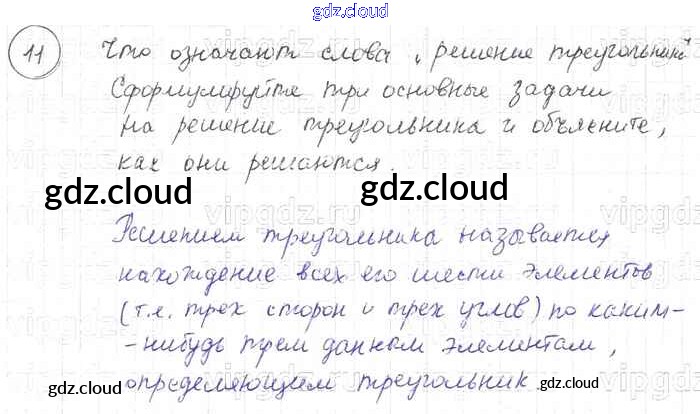 gdz.cloud
11 Что означают слова „решение треугольника"
Сформулируйте три основные задачи
на решение треугольника и объясните,
как они решаются.
gdz.cloud gdz.cloud
Решением треугольника называется
нахождение всех его шести элементов
(т.е. трех сторон и трех углов) по каким-
-нибудь трем данным элементам,
gdz.cloud gdz.cloud
определяющим треугольник
gdz.cloud gdz.cloud